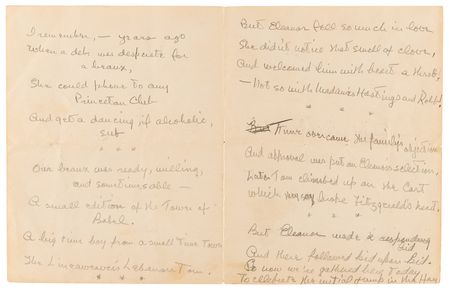 I remember, — years ago
When a deb was desperate for
a beaux,
She could phone to any
Princeton Club
And get a dancing, if alcoholic,
sub
* * *
Our beaux was ready, willing,
and sometimes able —
A small edition of the Tower of
Babel.
A big time boy from a small time town
The Lineaweaver's Lebanon Tom.
But Eleanor fell so much in love
She didn't notice that smell of clove,
And welcomed him with heart a throb,
— Not so with Madame Hastings and Robb!
* * *
Time overcame the family's objection
And approval was put on Eleanor's selection.
Later Tom climbed up on the Cart
which broke Fitzgerald's heart.
* * *
But Eleanor made a responding
bid
And there followed bid upon bid.
So now we're gathered here today
To celebrate the initial in the Hay